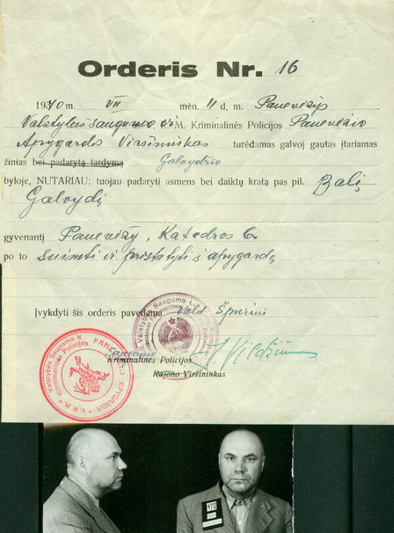 Orderis Nr. 16
1940 m. VII mėn. 11 d. m. Panevėžys
Valstybės Saugumo ir V. M. Kriminalinės Policijos Panevėžio
Apygardos Viršininkas turėdamas galvoj gautas įtariamas
žinias bei padarytą tardymą
byloje, NUTARIAU: tuojau padaryti asmens bei daiktų kratą pas pil. Balį
Galvydį
gyvenantį Panevėžy, Katedros 6
po to suimti ir pristatyti į apygardą
Įvykdyti šis orderis pavedama vald.
Kriminalinės Policijos
Rajono Viršininkas